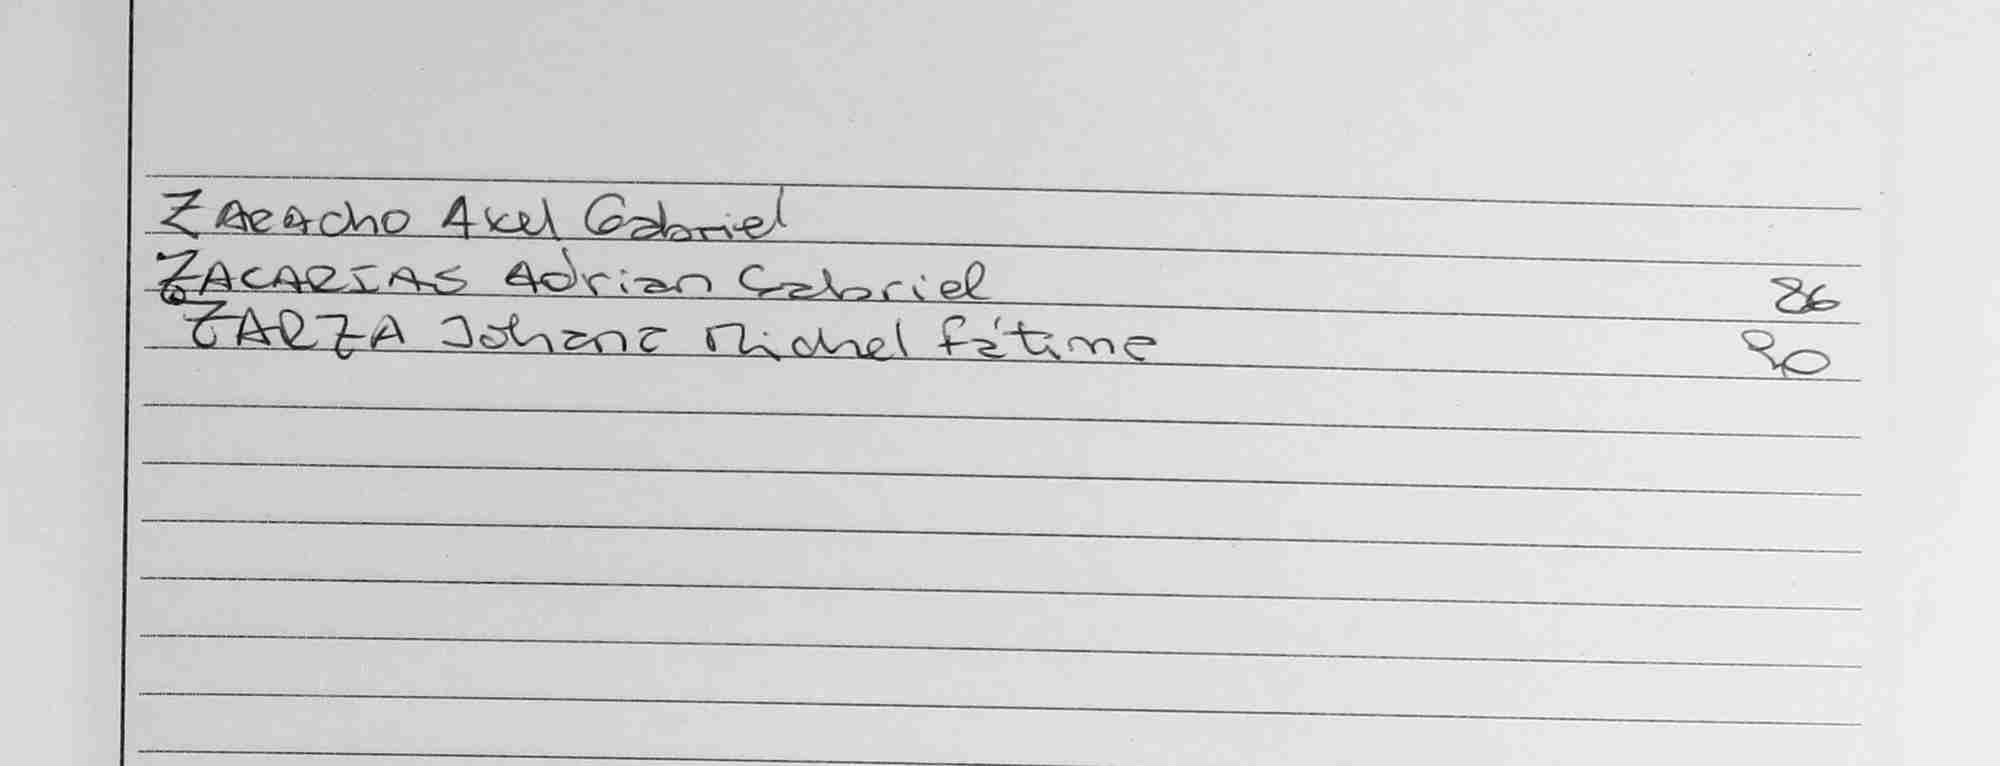 ZARACho Axel Gabriel
ZACARIAS Adrian Gabriel 86
ZARZA Johana Michel Fátima 90